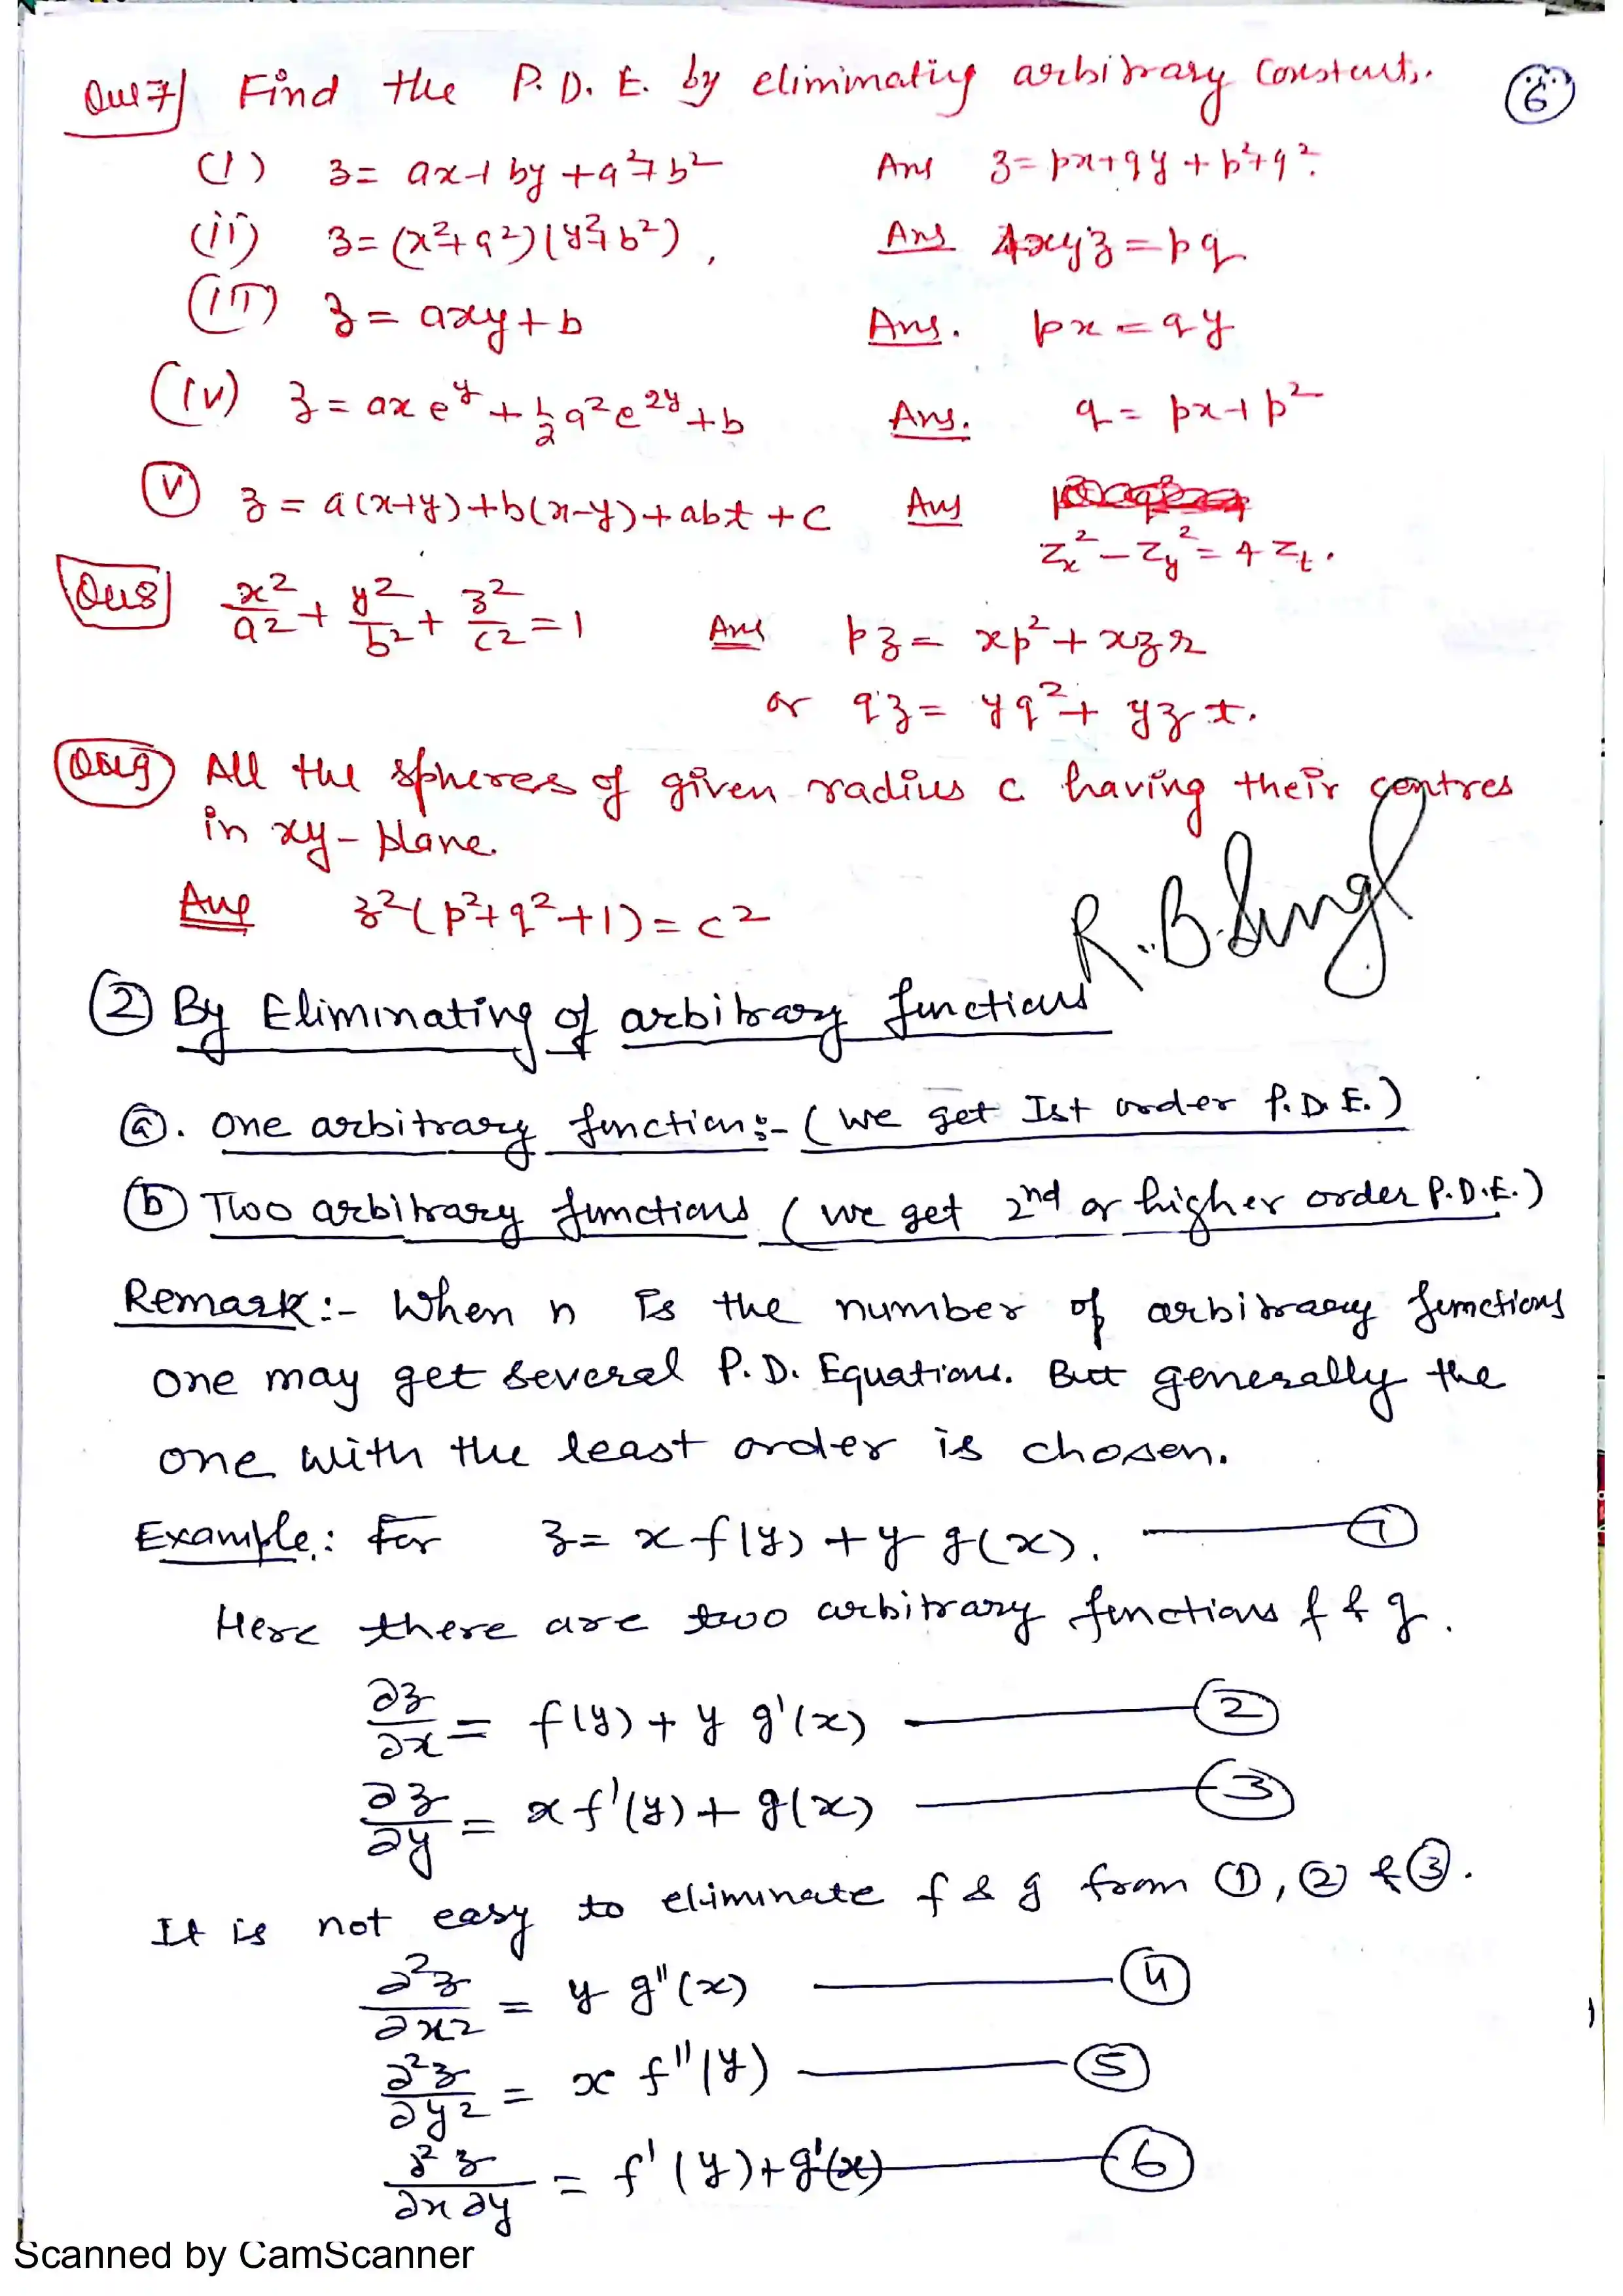 Que 7) Find the P.D.E. by eliminating arbitrary constants. (6)
(i) z = ax + by + a² + b² Ans z = px + qy + p² + q².
(ii) z = (x² + a²)(y² + b²), Ans 4xyz = pq
(iii) z = axy + b Ans. px = qy
(iv) z = ax e^y + 1/2 a² e^{2y} + b Ans. q = px + p²
(v) z = a(x+y) + b(x-y) + abt + c Ans
z_x² - z_y² = 4 z_t.
Que 8 x²/a² + y²/b² + z²/c² = 1 Ans pz = xp² + xzr
or qz = yq² + yzt.
Que 9 All the spheres of given radius c having their centres
in xy-plane.
Ans z²(p² + q² + 1) = c²
R.B.Singh
(2) By Eliminating of arbitrary functions
(a). One arbitrary function:- (we get Ist order P.D.E.)
(b) Two arbitrary functions (we get 2nd or higher order P.D.E.)
Remark:- When n is the number of arbitrary functions
one may get several P.D. Equations. But generally the
one with the least order is chosen.
Example: For z = x f(y) + y g(x). —— (1)
Here there are two arbitrary functions f & g.
∂z/∂x = f(y) + y g'(x) —— (2)
∂z/∂y = x f'(y) + g(x) —— (3)
It is not easy to eliminate f & g from (1), (2) & (3).
∂²z/∂x² = y g''(x) —— (4)
∂²z/∂y² = x f''(y) —— (5)
∂²z/∂x∂y = f'(y) + g'(x) —— (6)
Scanned by CamScanner